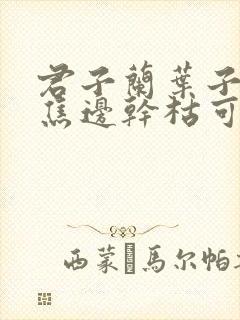 君子蘭葉子
焦邊幹枯可
西蒙·馬尔帕